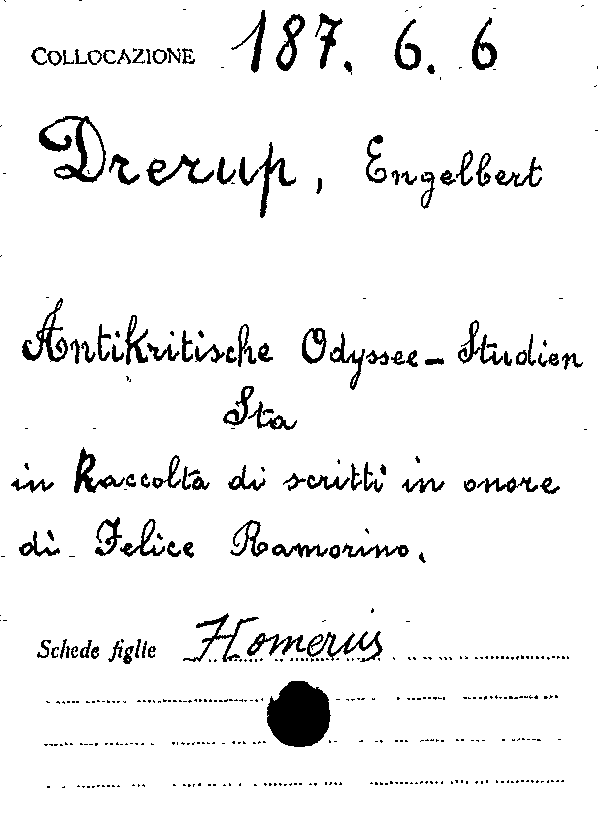 COLLOCAZIONE 187. 6. 6
Drerup, Engelbert
Antikritische Odyssee-Studien
Sta
in Raccolta di scritti in onore
di Felice Ramorino.
Schede figlie Homerus